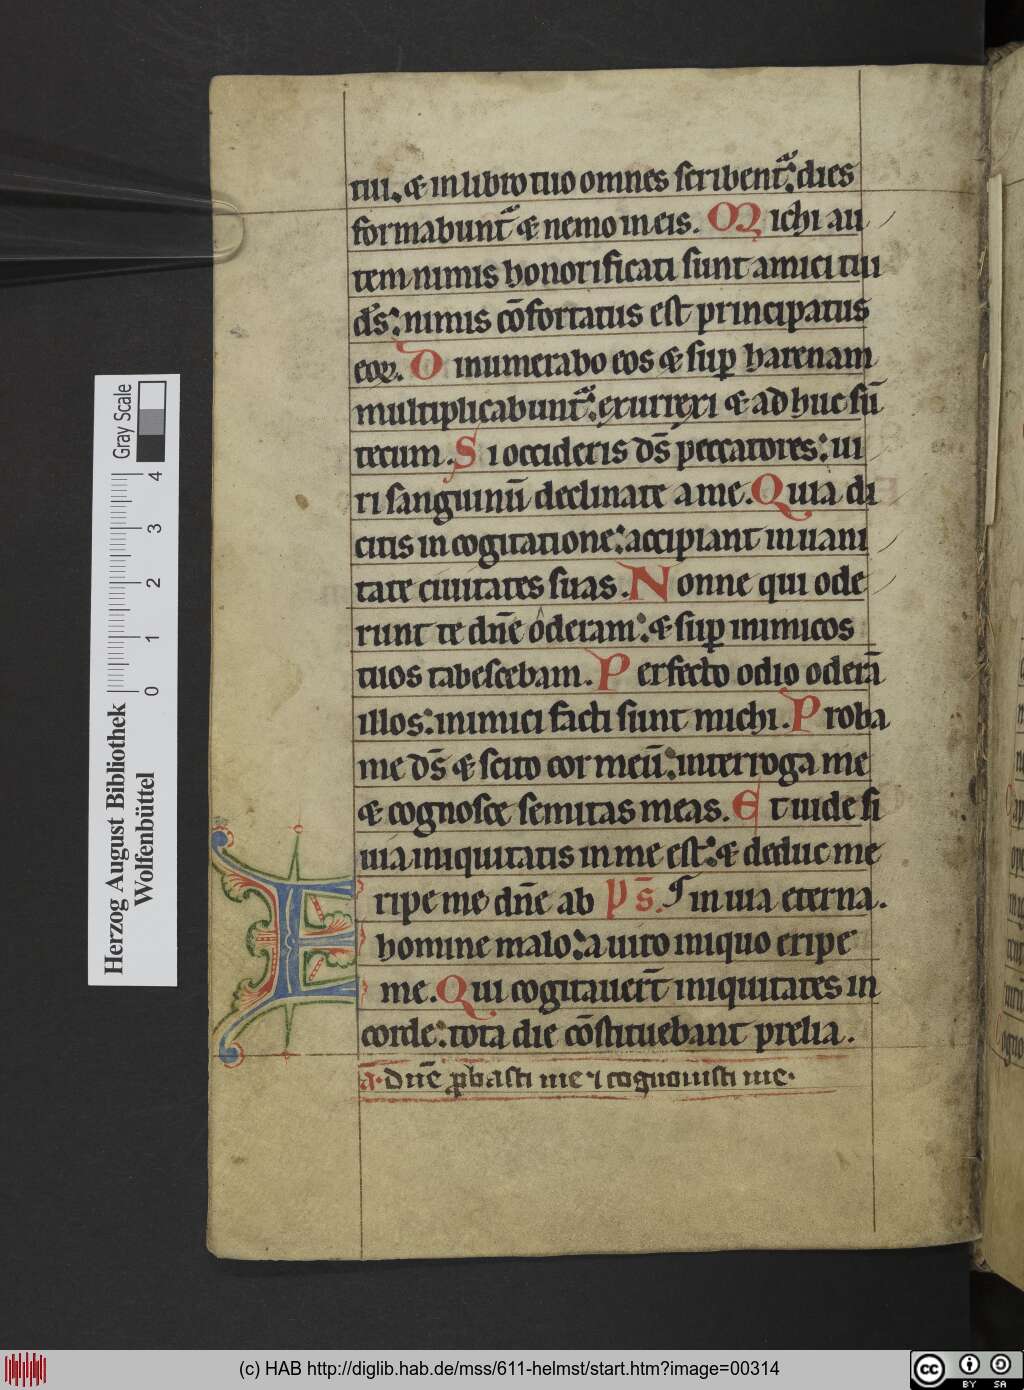 tui. & in libro tuo omnes scribent᷑: dies
formabunt᷑ & nemo in eis. Michi au
tem nimis honorificati sunt amici tui
d̄s: nimis cōfortatus est principatus
eoꝝ. Dinumerabo eos & suꝑ harenam
multiplicabunt᷑: exurrexi & adhuc sū
tecum. Si occideris d̄s peccatores: ui
ri sanguinū declinate a me. Quia di
citis in cogitatione: accipiant in uani
tate ciuitates suas. Nonne qui ode
runt te dn̄e oderam: & suꝑ inimicos
tuos tabescebam. Perfecto odio oderā
illos: inimici facti sunt michi. Proba
me d̄s & scito cor meū: interroga me
& cognosce semitas meas. Et uide si
uia iniquitatis in me est: & deduc me
in uia eterna.
Eripe me dn̄e ab ps̄.
homine malo: a uiro iniquo eripe
me. Qui cogitauer̄t iniquitates in
corde: tota die cōstituebant prelia.
a. dn̄e ꝓbasti me ⁊ cognouisti me.
Herzog August Bibliothek
Wolfenbüttel
0 1 2 3 4
Gray Scale
(c) HAB http://diglib.hab.de/mss/611-helmst/start.htm?image=00314
cc BY SA